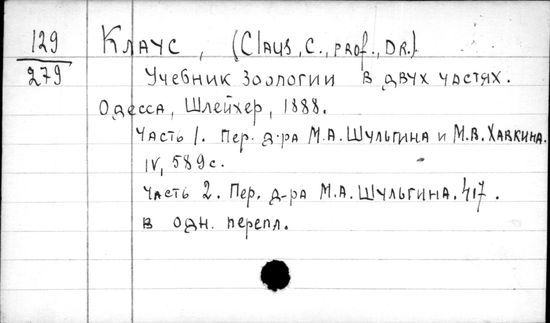 129
279
Клаус, (Claus, C., prof., Dr.)
Учебник Зоологии в двух частях.
Одесса, Шлейхер, 1888.
Часть 1. Пер. д-ра М.А. Шульгина и М.В. Хавкина.
IV, 589 с.
Часть 2. Пер. д-ра М.А. Шульгина. 417.
в одн. перепл.